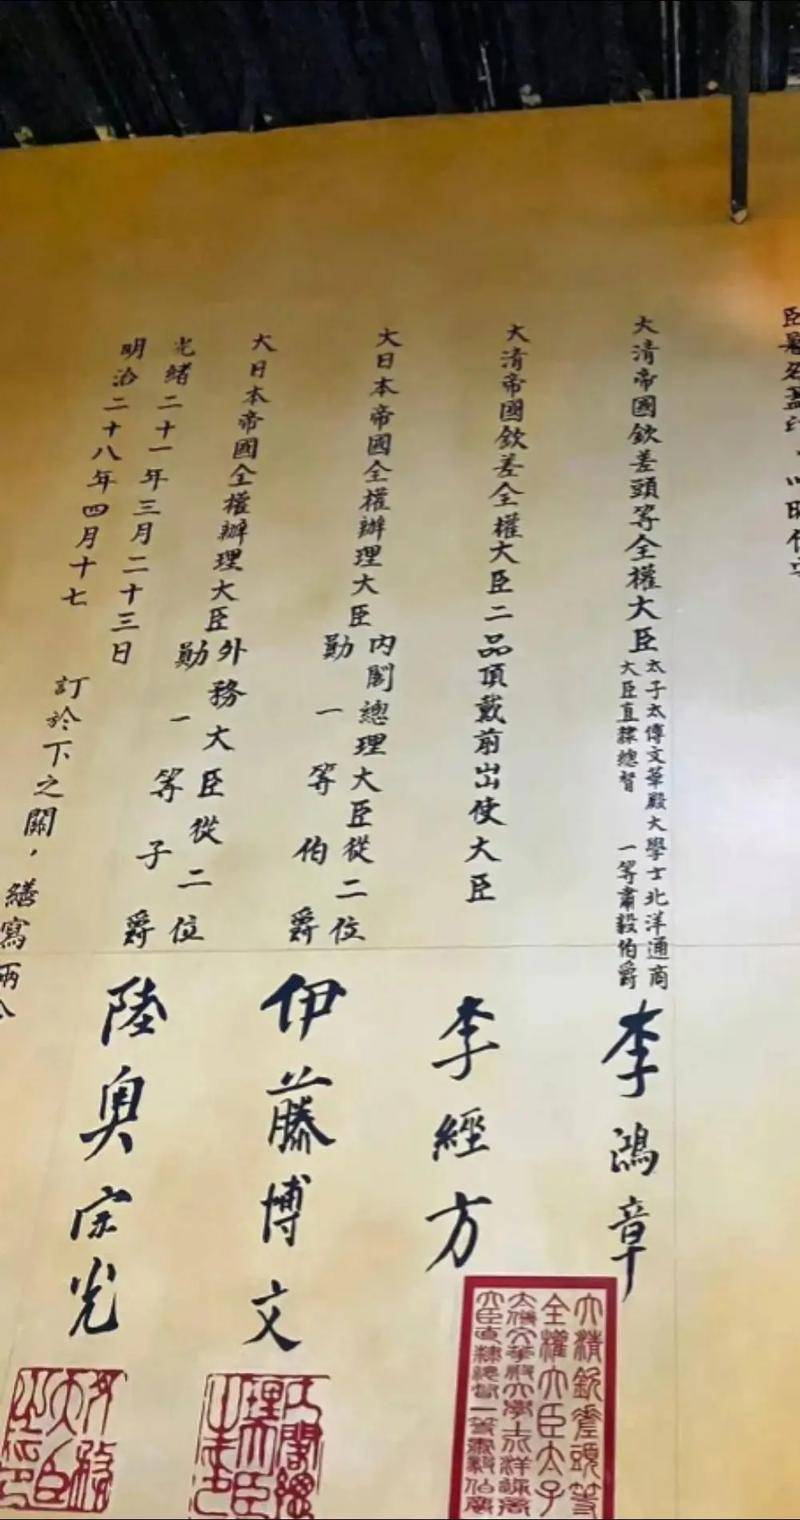 臣署名蓋印，以昭信守
大清帝國欽差頭等全權大臣
太子太傅文華殿大學士北洋通商
大臣直隸總督 一等肅毅伯爵
李鴻章
大清帝國欽差全權大臣二品頂戴前出使大臣
李經方
大日本帝國全權辦理大臣
內閣總理大臣從二位
勛一等伯爵
伊藤博文
大日本帝國全權辦理大臣
外務大臣從二位
勛一等子爵
陸奧宗光
光緒二十一年三月二十三日
明治二十八年四月十七
訂於下之關，繕寫兩
大清欽差頭等
全權大臣太子
太傅文華殿大學士北洋通商
大臣直隸總督一等肅毅伯爵
內閣總
理大臣
外務
大臣
之印